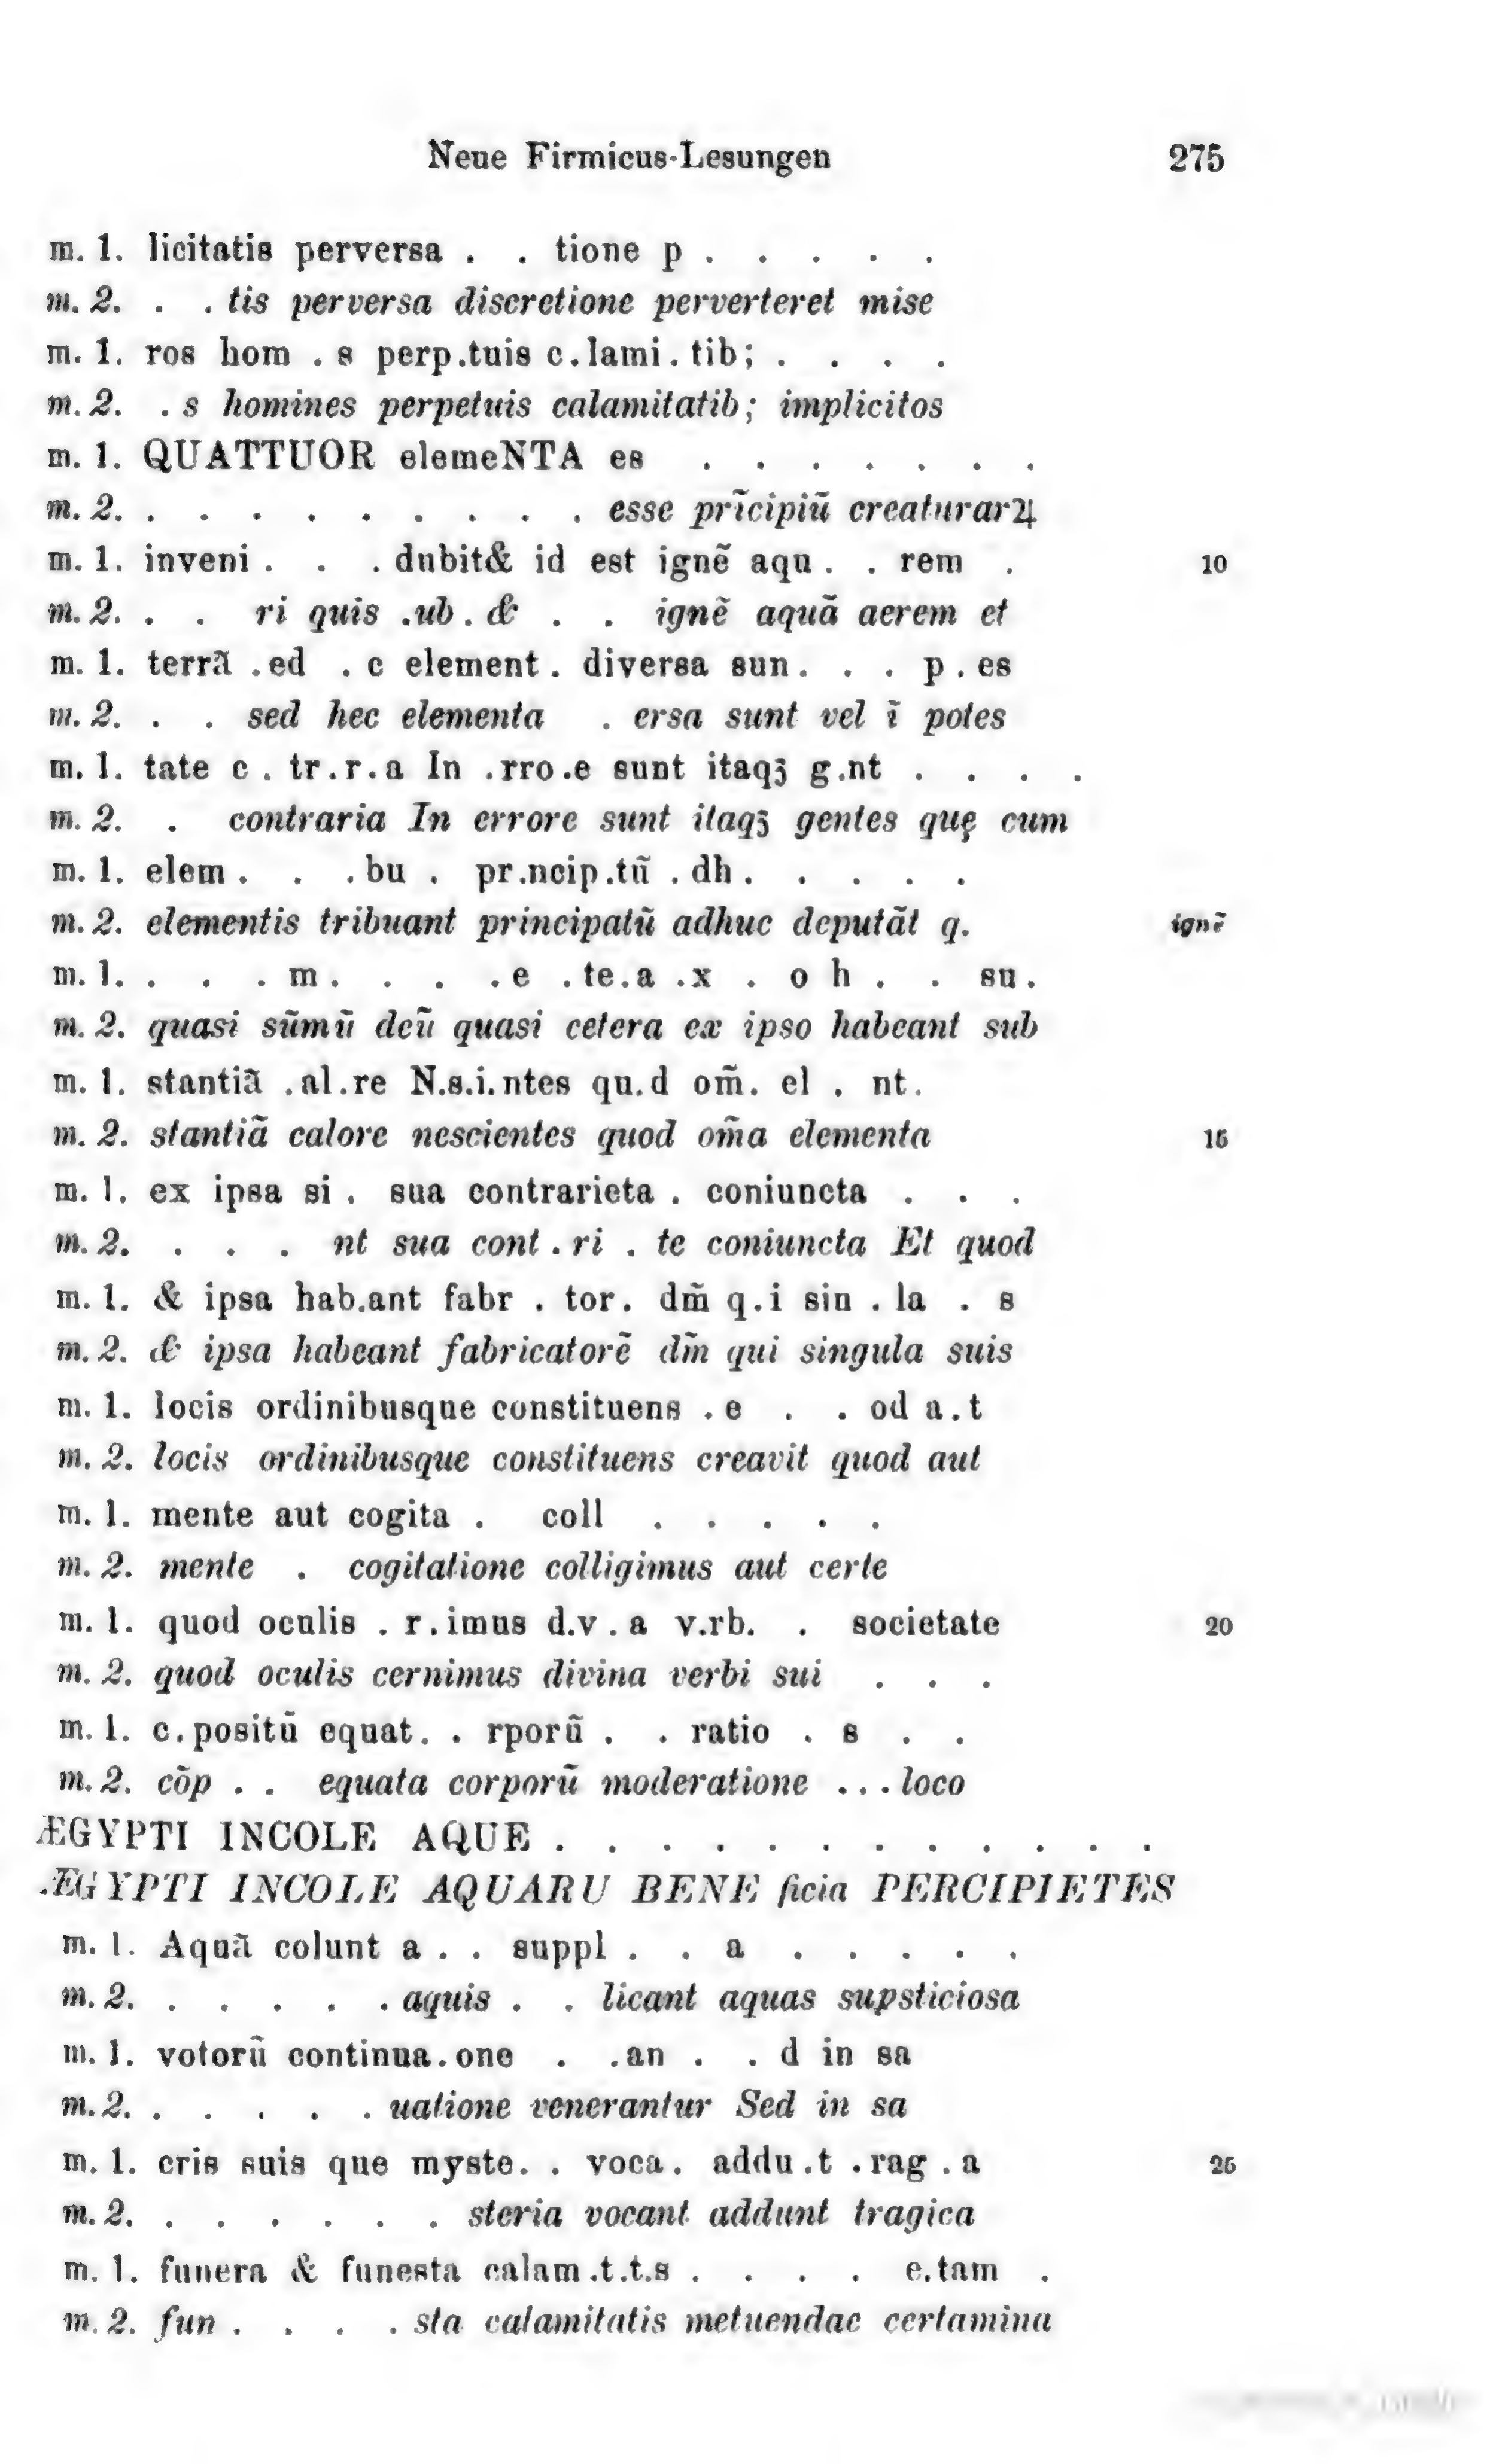 Neue Firmicus-Lesungen 275
m. 1. licitatis perversa . . tione p . . . . .
m. 2. . . tis perversa discretione perverteret mise
m. 1. ros hom . s perp.tuis c.lami. tib; . . . .
m. 2. . s homines perpetuis calamitatib; implicitos
m. 1. QUATTUOR elemeNTA es . . . . . . .
m. 2. . . . . . . . . . esse prĩcipiũ creaturarꝝ
m. 1. inveni . . . dubit& id est ignẽ aqu . . rem . 10
m. 2. . . ri quis .ub . & . . ignẽ aquã aerem et
m. 1. terrã .ed . c element . diversa sun . . . p . es
m. 2. . . sed hec elementa . ersa sunt vel ĩ potes
m. 1. tate c . tr.r.a In .rro.e sunt itaqꝫ g.nt . . . .
m. 2. . contraria In errore sunt itaqꝫ gentes quę cum
m. 1. elem . . . bu . pr.ncip.tũ .dh . . . . .
m. 2. elementis tribuant principatũ adhuc deputãt q. ignẽ
m. 1. . . . m . . . . e .te.a .x . o h . . su.
m. 2. quasi sũmũ deũ quasi cetera ex ipso habeant sub
m. 1. stantiã .al.re N.s.i.ntes qu.d om̃. el . nt.
m. 2. stantiã calore nescientes quod om̃a elementa 15
m. 1. ex ipsa si . sua contrarieta . coniuncta . . .
m. 2. . . . . nt sua cont . ri . te coniuncta Et quod
m. 1. & ipsa hab.ant fabr . tor. dm̃ q.i sin . la . s
m. 2. & ipsa habeant fabricatorẽ dm̃ qui singula suis
m. 1. locis ordinibusque constituens . e . . od a.t
m. 2. locis ordinibusque constituens creavit quod aut
m. 1. mente aut cogita . coll . . . . .
m. 2. mente . cogitatione colligimus aut certe
m. 1. quod oculis . r.imus d.v.a v.rb. . societate 20
m. 2. quod oculis cernimus divina verbi sui . . .
m. 1. c.positũ equat. . rporũ . . ratio . s . .
m. 2. cõp . . equata corporũ moderatione ... loco
ÆGYPTI INCOLE AQUE . . . . . . . . . . . .
ÆGYPTI INCOLE AQUARU BENE ficia PERCIPIETES
m. 1. Aquã colunt a . . suppl . . a . . . . .
m. 2. . . . . . aquis . . licant aquas supsticiosa
m. 1. votorũ continua.one . .an . . d in sa
m. 2. . . . . . uatione venerantur Sed in sa
m. 1. cris suis que myste. . voca. addu.t .rag.a 25
m. 2. . . . . . . steria vocant addunt tragica
m. 1. funera & funesta calam.t.t.s . . . . e.tam .
m. 2. fun . . . . sta calamitatis metuendae certamina